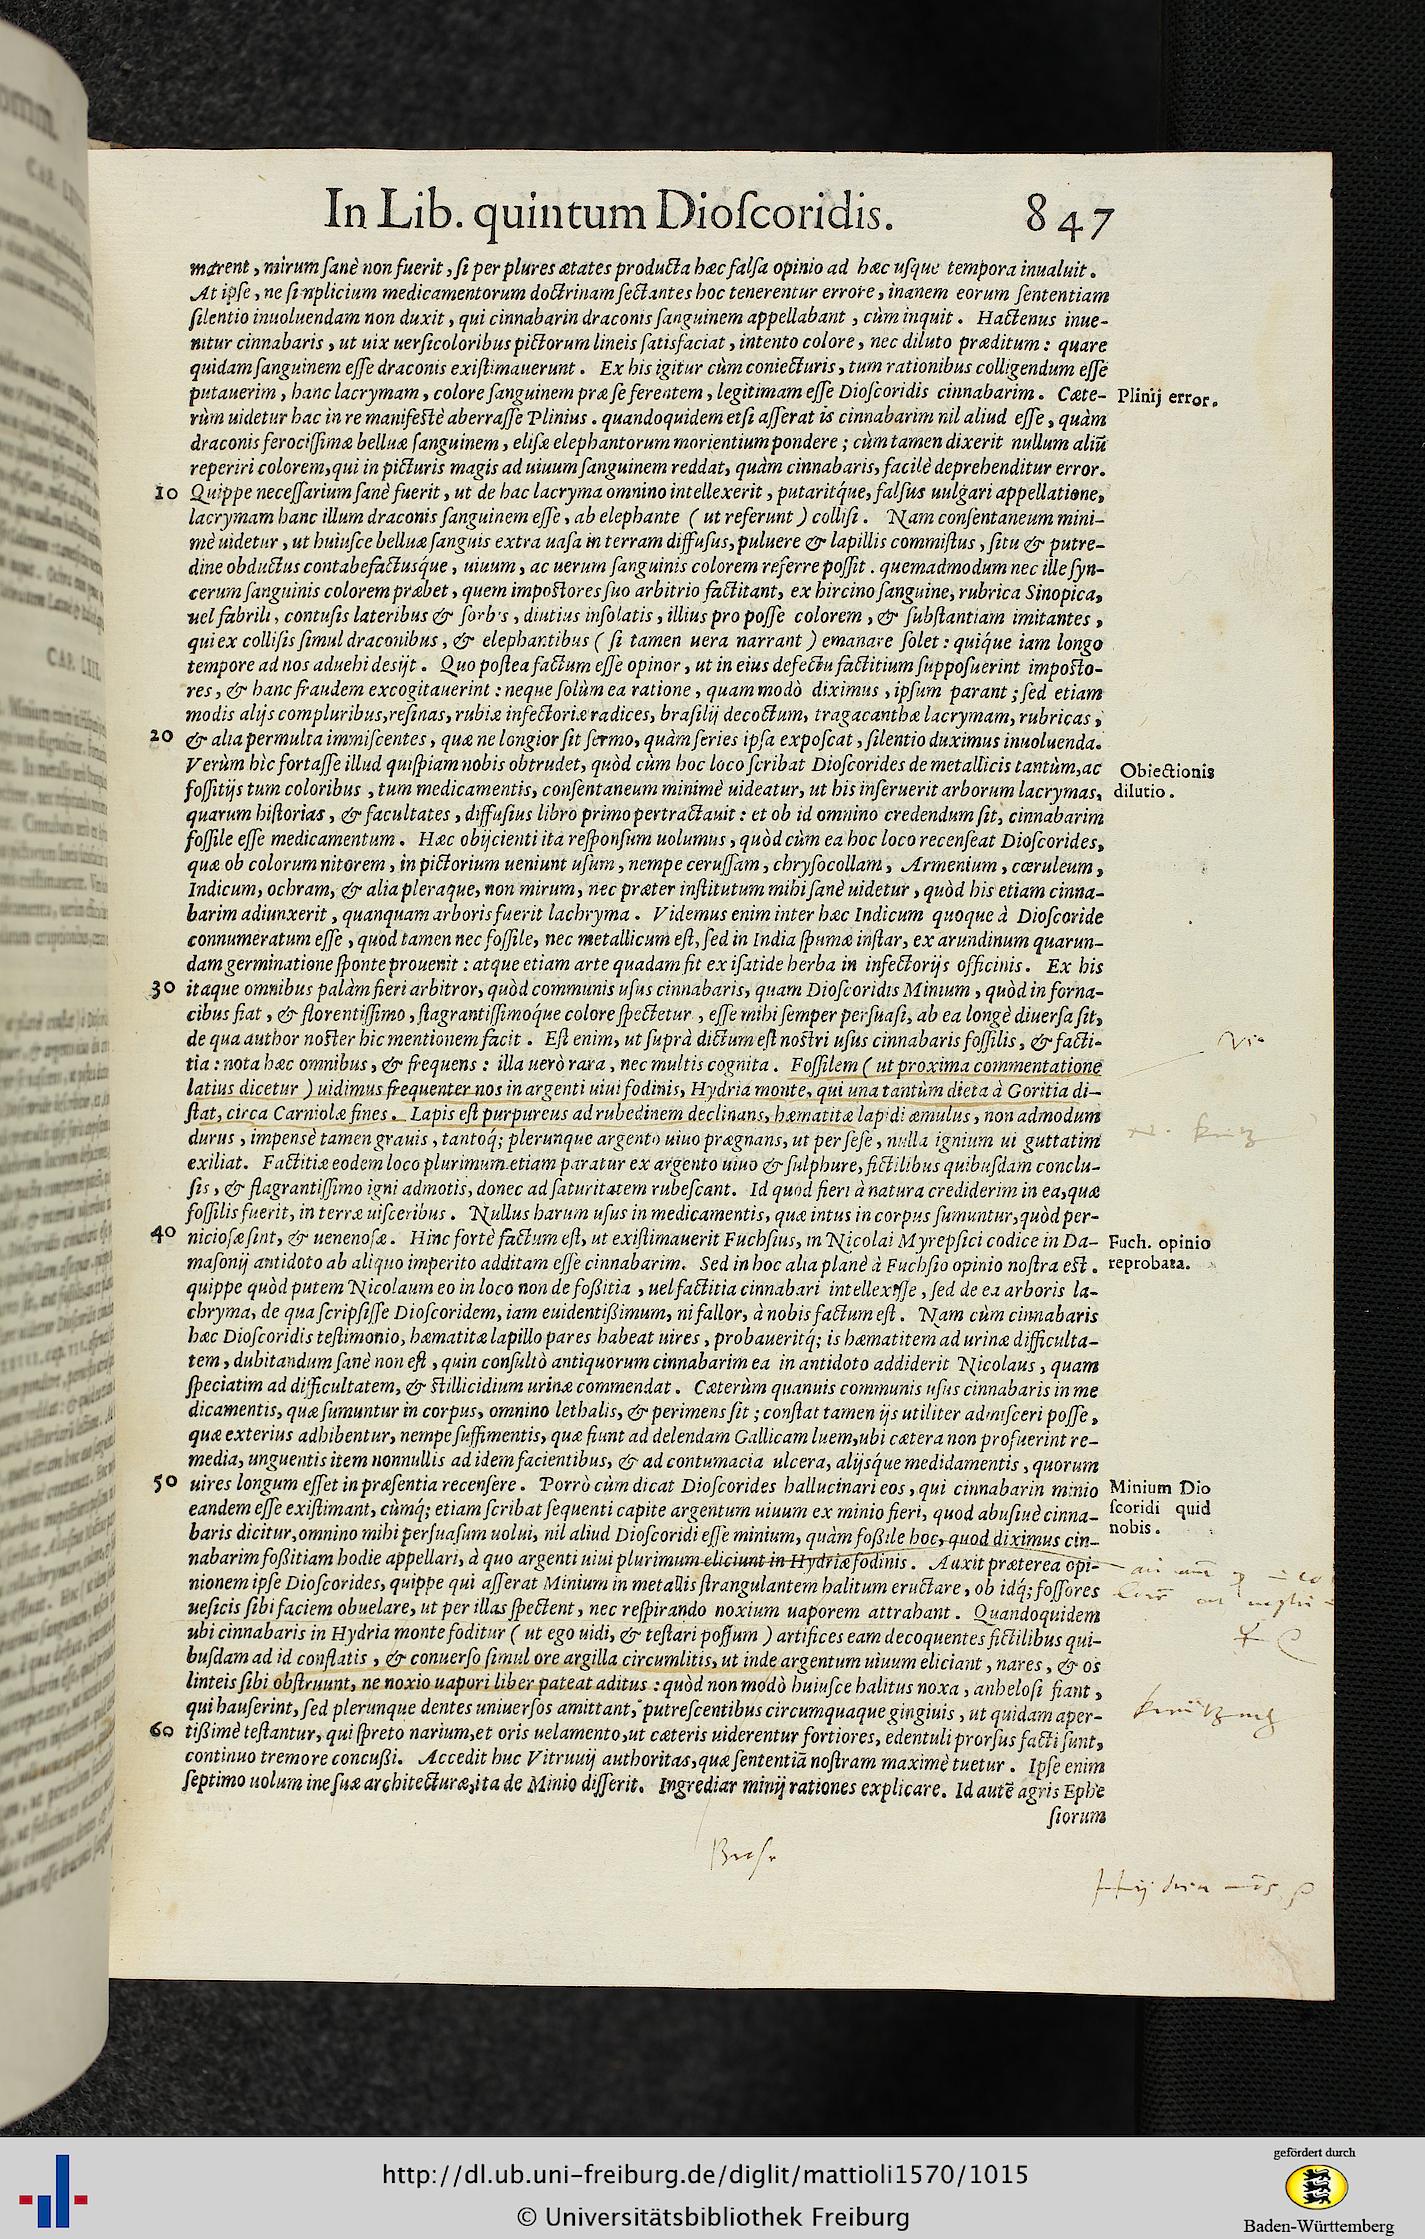 In Lib. quintum Dioſcoridis. 847
marent, mirum ſanè non fuerit, ſi per plures ætates producta hæc falſa opinio ad hæc uſque tempora inualuit.
At ipſe, ne ſimplicium medicamentorum doctrinam ſectantes hoc tenerentur errore, inanem eorum ſententiam
ſilentio inuoluendam non duxit, qui cinnabarin draconis ſanguinem appellabant, cùm inquit. Hactenus inue-
nitur cinnabaris, ut uix uerſicoloribus pictorum lineis ſatisfaciat, intento colore, nec diluto præditum: quare
quidam ſanguinem eſſe draconis exiſtimauerunt. Ex his igitur cùm coniecturis, tum rationibus colligendum eſſe
putauerim, hanc lacrymam, colore ſanguinem præ ſe ferentem, legitimam eſſe Dioſcoridis cinnabarim. Cæte-
Plinij error.
rùm uidetur hac in re manifeſtè aberraſſe Plinius. quandoquidem etſi aſſerat is cinnabarim nil aliud eſſe, quàm
draconis ferociſſimæ belluæ ſanguinem, eliſæ elephantorum morientium pondere; cùm tamen dixerit nullum aliũ
reperiri colorem, qui in picturis magis ad uiuum ſanguinem reddat, quàm cinnabaris, facilè deprehenditur error.
10 Quippe neceſſarium ſanè fuerit, ut de hac lacryma omnino intellexerit, putaritq́ue, falſus uulgari appellatione,
lacrymam hanc illum draconis ſanguinem eſſe, ab elephante ( ut referunt ) colliſi. Nam conſentaneum mini-
mè uidetur, ut huiuſce belluæ ſanguis extra uaſa in terram diffuſus, puluere & lapillis commiſtus, ſitu & putre-
dine obductus contabefactusq́ue, uiuum, ac uerum ſanguinis colorem referre poſſit. quemadmodum nec ille ſyn-
cerum ſanguinis colorem præbet, quem impoſtores ſuo arbitrio factitant, ex hircino ſanguine, rubrica Sinopica,
uel fabrili, contuſis lateribus & ſorbis, diutius inſolatis, illius pro poſſe colorem, & ſubſtantiam imitantes,
qui ex colliſis ſimul draconibus, & elephantibus ( ſi tamen uera narrant ) emanare ſolet: quiq́ue iam longo
tempore ad nos aduehi desijt. Quo poſtea factum eſſe opinor, ut in eius defectu factitium ſuppoſuerint impoſto-
res, & hanc fraudem excogitauerint: neque ſolùm ea ratione, quam modò diximus, ipſum parant; ſed etiam
modis alijs compluribus, reſinas, rubiæ infectoriæ radices, braſilij decoctum, tragacanthæ lacrymam, rubricas,
20 & alia permulta immiſcentes, quæ ne longior ſit ſermo, quàm ſeries ipſa expoſcat, ſilentio duximus inuoluenda.
Verùm hìc fortaſſe illud quiſpiam nobis obtrudet, quòd cùm hoc loco ſcribat Dioſcorides de metallicis tantùm, ac
Obiectionis
foſſitijs tum coloribus, tum medicamentis, conſentaneum minimè uideatur, ut his inſeruerit arborum lacrymas,
dilutio.
quarum hiſtorias, & facultates, diffuſius libro primo pertractauit: et ob id omnino credendum ſit, cinnabarim
foſſile eſſe medicamentum. Hæc obijcienti ita reſponſum uolumus, quòd cùm ea hoc loco recenſeat Dioſcorides,
quæ ob colorum nitorem, in pictorium ueniunt uſum, nempe ceruſſam, chryſocollam, Armenium, cæruleum,
Indicum, ochram, & alia pleraque, non mirum, nec præter inſtitutum mihi ſanè uidetur, quòd his etiam cinna-
barim adiunxerit, quanquam arboris fuerit lachryma. Videmus enim inter hæc Indicum quoque à Dioſcoride
connumeratum eſſe, quod tamen nec foſſile, nec metallicum eſt, ſed in India ſpumæ inſtar, ex arundinum quarun-
dam germinatione ſponte prouenit: atque etiam arte quadam fit ex iſatide herba in infectorijs officinis. Ex his
30 itaque omnibus palàm fieri arbitror, quòd communis uſus cinnabaris, quam Dioſcoridis Minium, quòd in forna-
cibus fiat, & florentiſſimo, flagrantiſſimoq́ue colore ſpectetur, eſſe mihi ſemper perſuaſi, ab ea longè diuerſa ſit,
de qua author noſter hic mentionem facit. Eſt enim, ut ſuprà dictum eſt noſtri uſus cinnabaris foſſilis, & facti-
tia: nota hæc omnibus, & frequens: illa uerò rara, nec multis cognita. Foſſilem ( ut proxima commentatione
latius dicetur ) uidimus frequenter nos in argenti uiui fodinis, Hydria monte, qui una tantùm dieta à Goritia di-
ſtat, circa Carniolæ fines. Lapis eſt purpureus ad rubedinem declinans, hæmatitæ lapidi æmulus, non admodum
durus, impensè tamen grauis, tantoq́; plerunque argento uiuo prægnans, ut per ſeſe, nulla ignium ui guttatim
exiliat. Factitiæ eodem loco plurimum etiam paratur ex argento uiuo & ſulphure, fictilibus quibuſdam conclu-
ſis, & flagrantiſſimo igni admotis, donec ad ſaturitatem rubeſcant. Id quod fieri à natura crediderim in ea, quæ
foſſilis fuerit, in terræ uiſceribus. Nullus harum uſus in medicamentis, quæ intus in corpus ſumuntur, quòd per-
40 nicioſæ ſint, & uenenoſæ. Hinc fortè factum eſt, ut exiſtimauerit Fuchſius, in Nicolai Myrepſici codice in Da-
Fuch. opinio
maſonij antidoto ab aliquo imperito additam eſſe cinnabarim. Sed in hoc alia planè à Fuchſio opinio noſtra eſt.
reprobata.
quippe quòd putem Nicolaum eo in loco non de foßitia, uel factitia cinnabari intellexiſſe, ſed de ea arboris la-
chryma, de qua ſcripſiſſe Dioſcoridem, iam euidentißimum, ni fallor, à nobis factum eſt. Nam cùm cinnabaris
hæc Dioſcoridis teſtimonio, hæmatitæ lapillo pares habeat uires, probaueritq́; is hæmatitem ad urinæ difficulta-
tem, dubitandum ſanè non eſt, quin conſultò antiquorum cinnabarim ea in antidoto addiderit Nicolaus, quam
ſpeciatim ad difficultatem, & ſtillicidium urinæ commendat. Cæterùm quanuis communis uſus cinnabaris in me
dicamentis, quæ ſumuntur in corpus, omnino lethalis, & perimens ſit; conſtat tamen ijs utiliter admiſceri poſſe,
quæ exterius adhibentur, nempe ſuffimentis, quæ fiunt ad delendam Gallicam luem, ubi cætera non profuerint re-
media, unguentis item nonnullis ad idem facientibus, & ad contumacia ulcera, alijsq́ue medidamentis, quorum
50 uires longum eſſet in præſentia recenſere. Porrò cùm dicat Dioſcorides hallucinari eos, qui cinnabarin minio
Minium Dio
eandem eſſe exiſtimant, cùmq́; etiam ſcribat ſequenti capite argentum uiuum ex minio fieri, quod abuſiuè cinna-
ſcoridi quid
baris dicitur, omnino mihi perſuaſum uolui, nil aliud Dioſcoridi eſſe minium, quàm foßile hoc, quod diximus cin-
nobis.
nabarim foßitiam hodie appellari, à quo argenti uiui plurimum eliciunt in Hydriæ fodinis. Auxit præterea opi-
nionem ipſe Dioſcorides, quippe qui aſſerat Minium in metallis ſtrangulantem halitum eructare, ob idq́; foſſores
ueſicis ſibi faciem obuelare, ut per illas ſpectent, nec reſpirando noxium uaporem attrahant. Quandoquidem
ubi cinnabaris in Hydria monte foditur ( ut ego uidi, & teſtari poſſum ) artifices eam decoquentes fictilibus qui-
buſdam ad id conflatis, & conuerſo ſimul ore argilla circumlitis, ut inde argentum uiuum eliciant, nares, & os
linteis ſibi obſtruunt, ne noxio uapori liber pateat aditus: quòd non modò huiuſce halitus noxa, anheloſi fiant,
qui hauſerint, ſed plerunque dentes uniuerſos amittant, putreſcentibus circumquaque gingiuis, ut quidam aper-
60 tißimè teſtantur, qui ſpreto narium, et oris uelamento, ut cæteris uiderentur fortiores, edentuli prorſus facti ſunt,
continuo tremore concußi. Accedit huc Vitruuij authoritas, quæ ſententiã noſtram maximè tuetur. Ipſe enim
ſeptimo uolumine ſuæ architecturæ, ita de Minio diſſerit. Ingrediar minij rationes explicare. Id autē agris Ephe
ſiorum
http://dl.ub.uni-freiburg.de/diglit/mattioli1570/1015
© Universitätsbibliothek Freiburg
gefördert durch
Baden-Württemberg